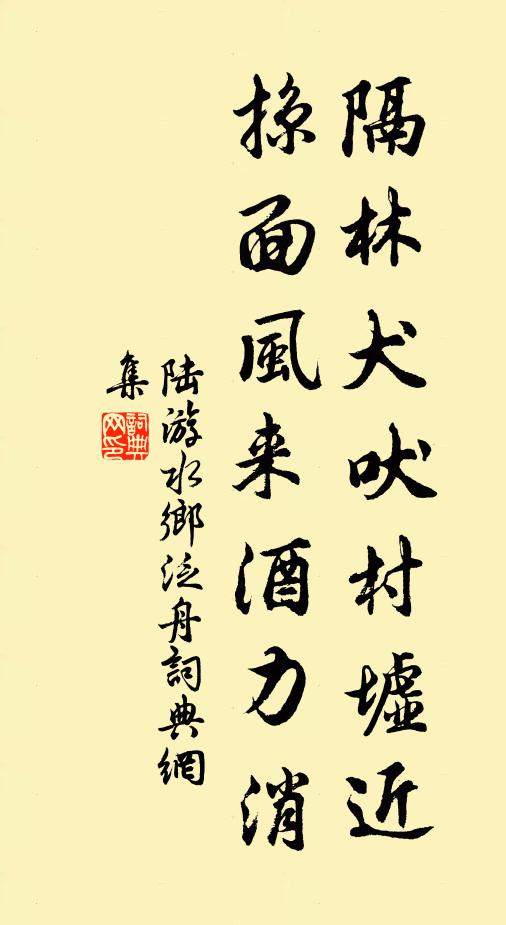 隔林犬吠村墟近
掠面風来酒力消
陆游水鄉泛舟詞典網
集
詞典
网印